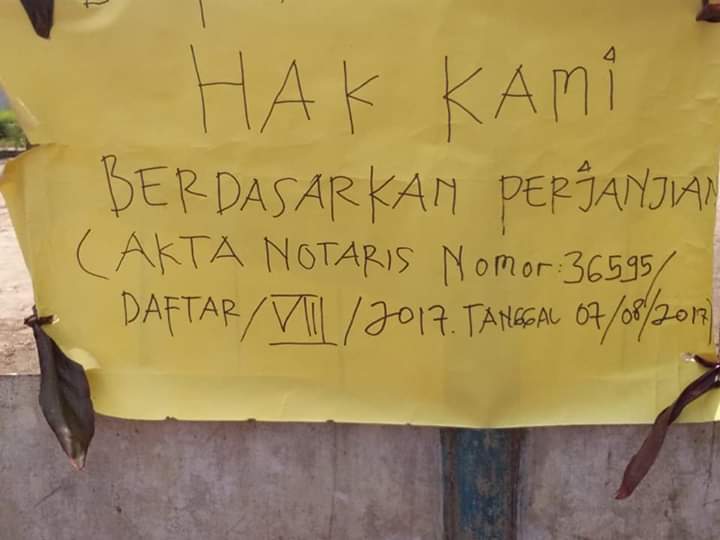 HAK KAMi
BERDASARKAN PERJANJIAN
(AKTA NOTARIS Nomor: 36595/
DAFTAR/VIII/2017. TANGGAL 07/08/2017)